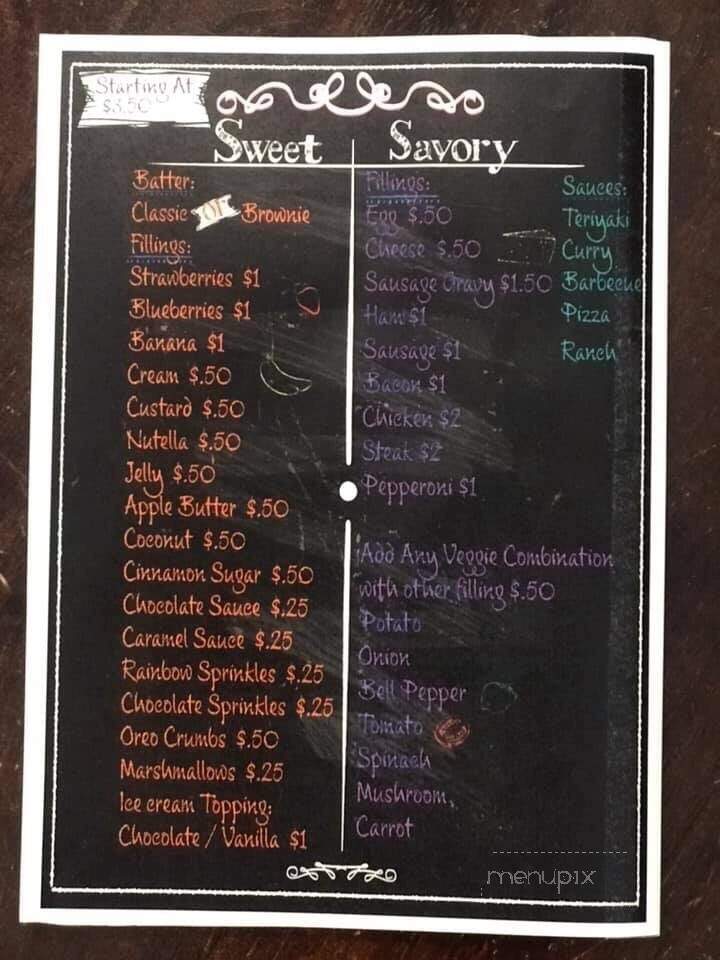 Starting At
$3.50
Sweet
Batter:
Classic or Brownie
Fillings:
Strawberries $1
Blueberries $1
Banana $1
Cream $.50
Custard $.50
Nutella $.50
Jelly $.50
Apple Butter $.50
Coconut $.50
Cinnamon Sugar $.50
Chocolate Sauce $.25
Caramel Sauce $.25
Rainbow Sprinkles $.25
Chocolate Sprinkles $.25
Oreo Crumbs $.50
Marshmallows $.25
Ice cream Topping:
Chocolate / Vanilla $1
Savory
Fillings:
Egg $.50
Cheese $.50
Sausage Gravy $1.50
Ham $1
Sausage $1
Bacon $1
Chicken $2
Steak $2
Pepperoni $1
Add Any Veggie Combination
with other filling $.50
Potato
Onion
Bell Pepper
Tomato
Spinach
Mushroom
Carrot
Sauces:
Teriyaki
Curry
Barbecue
Pizza
Ranch
menupix